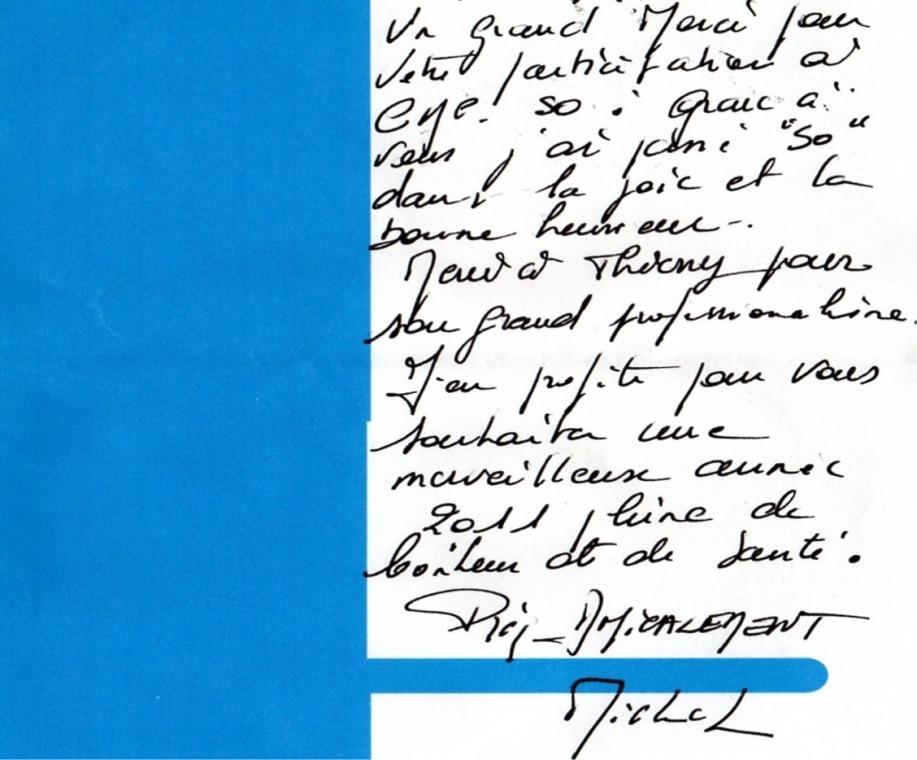 Un grand Merci pour
votre participation à
Cype. so : Grace à
vous j'ai passé "So"
dans la joie et la
bonne humeur..
Merci à Thierry pour
son grand professionnalisme.
J'en profite pour vous
souhaiter une
merveilleuse année
2011 pleine de
bonheur et de santé.
AMICALEMENT
Michel